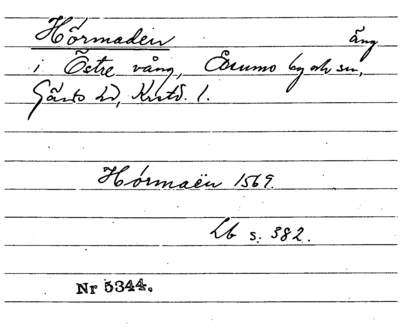 Hörmaden äng
i Östre vång, Everumo by och sn,
Gärds hd, Kristd. l.
Hörmaën 1569.
Lb s. 382.
Nr 5344.